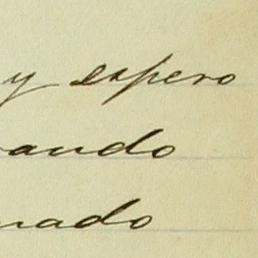 y espero
ando
nado